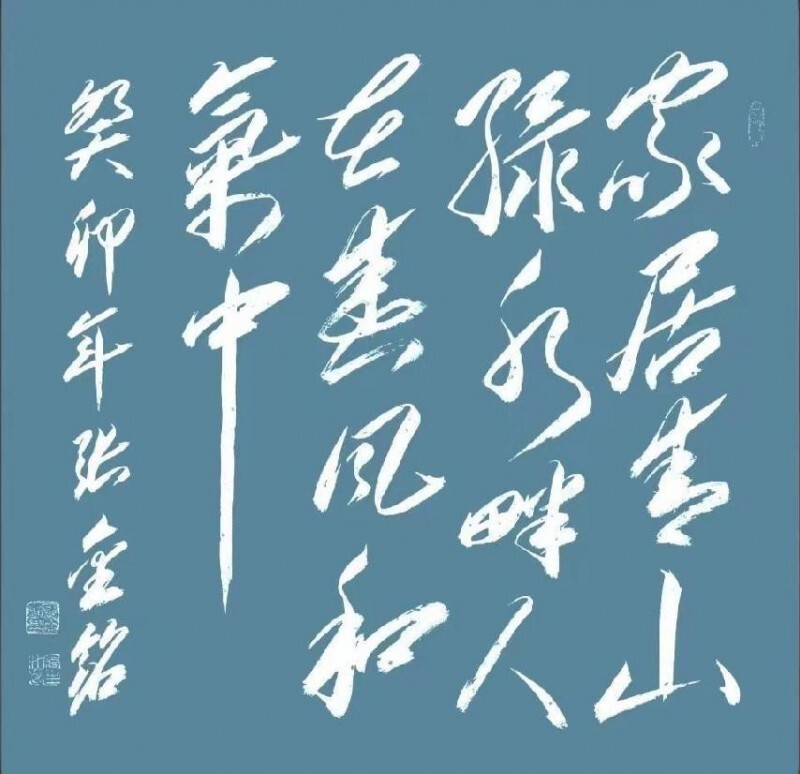 家居青山
绿水畔人
在春风和
氣中
癸卯年张金铭